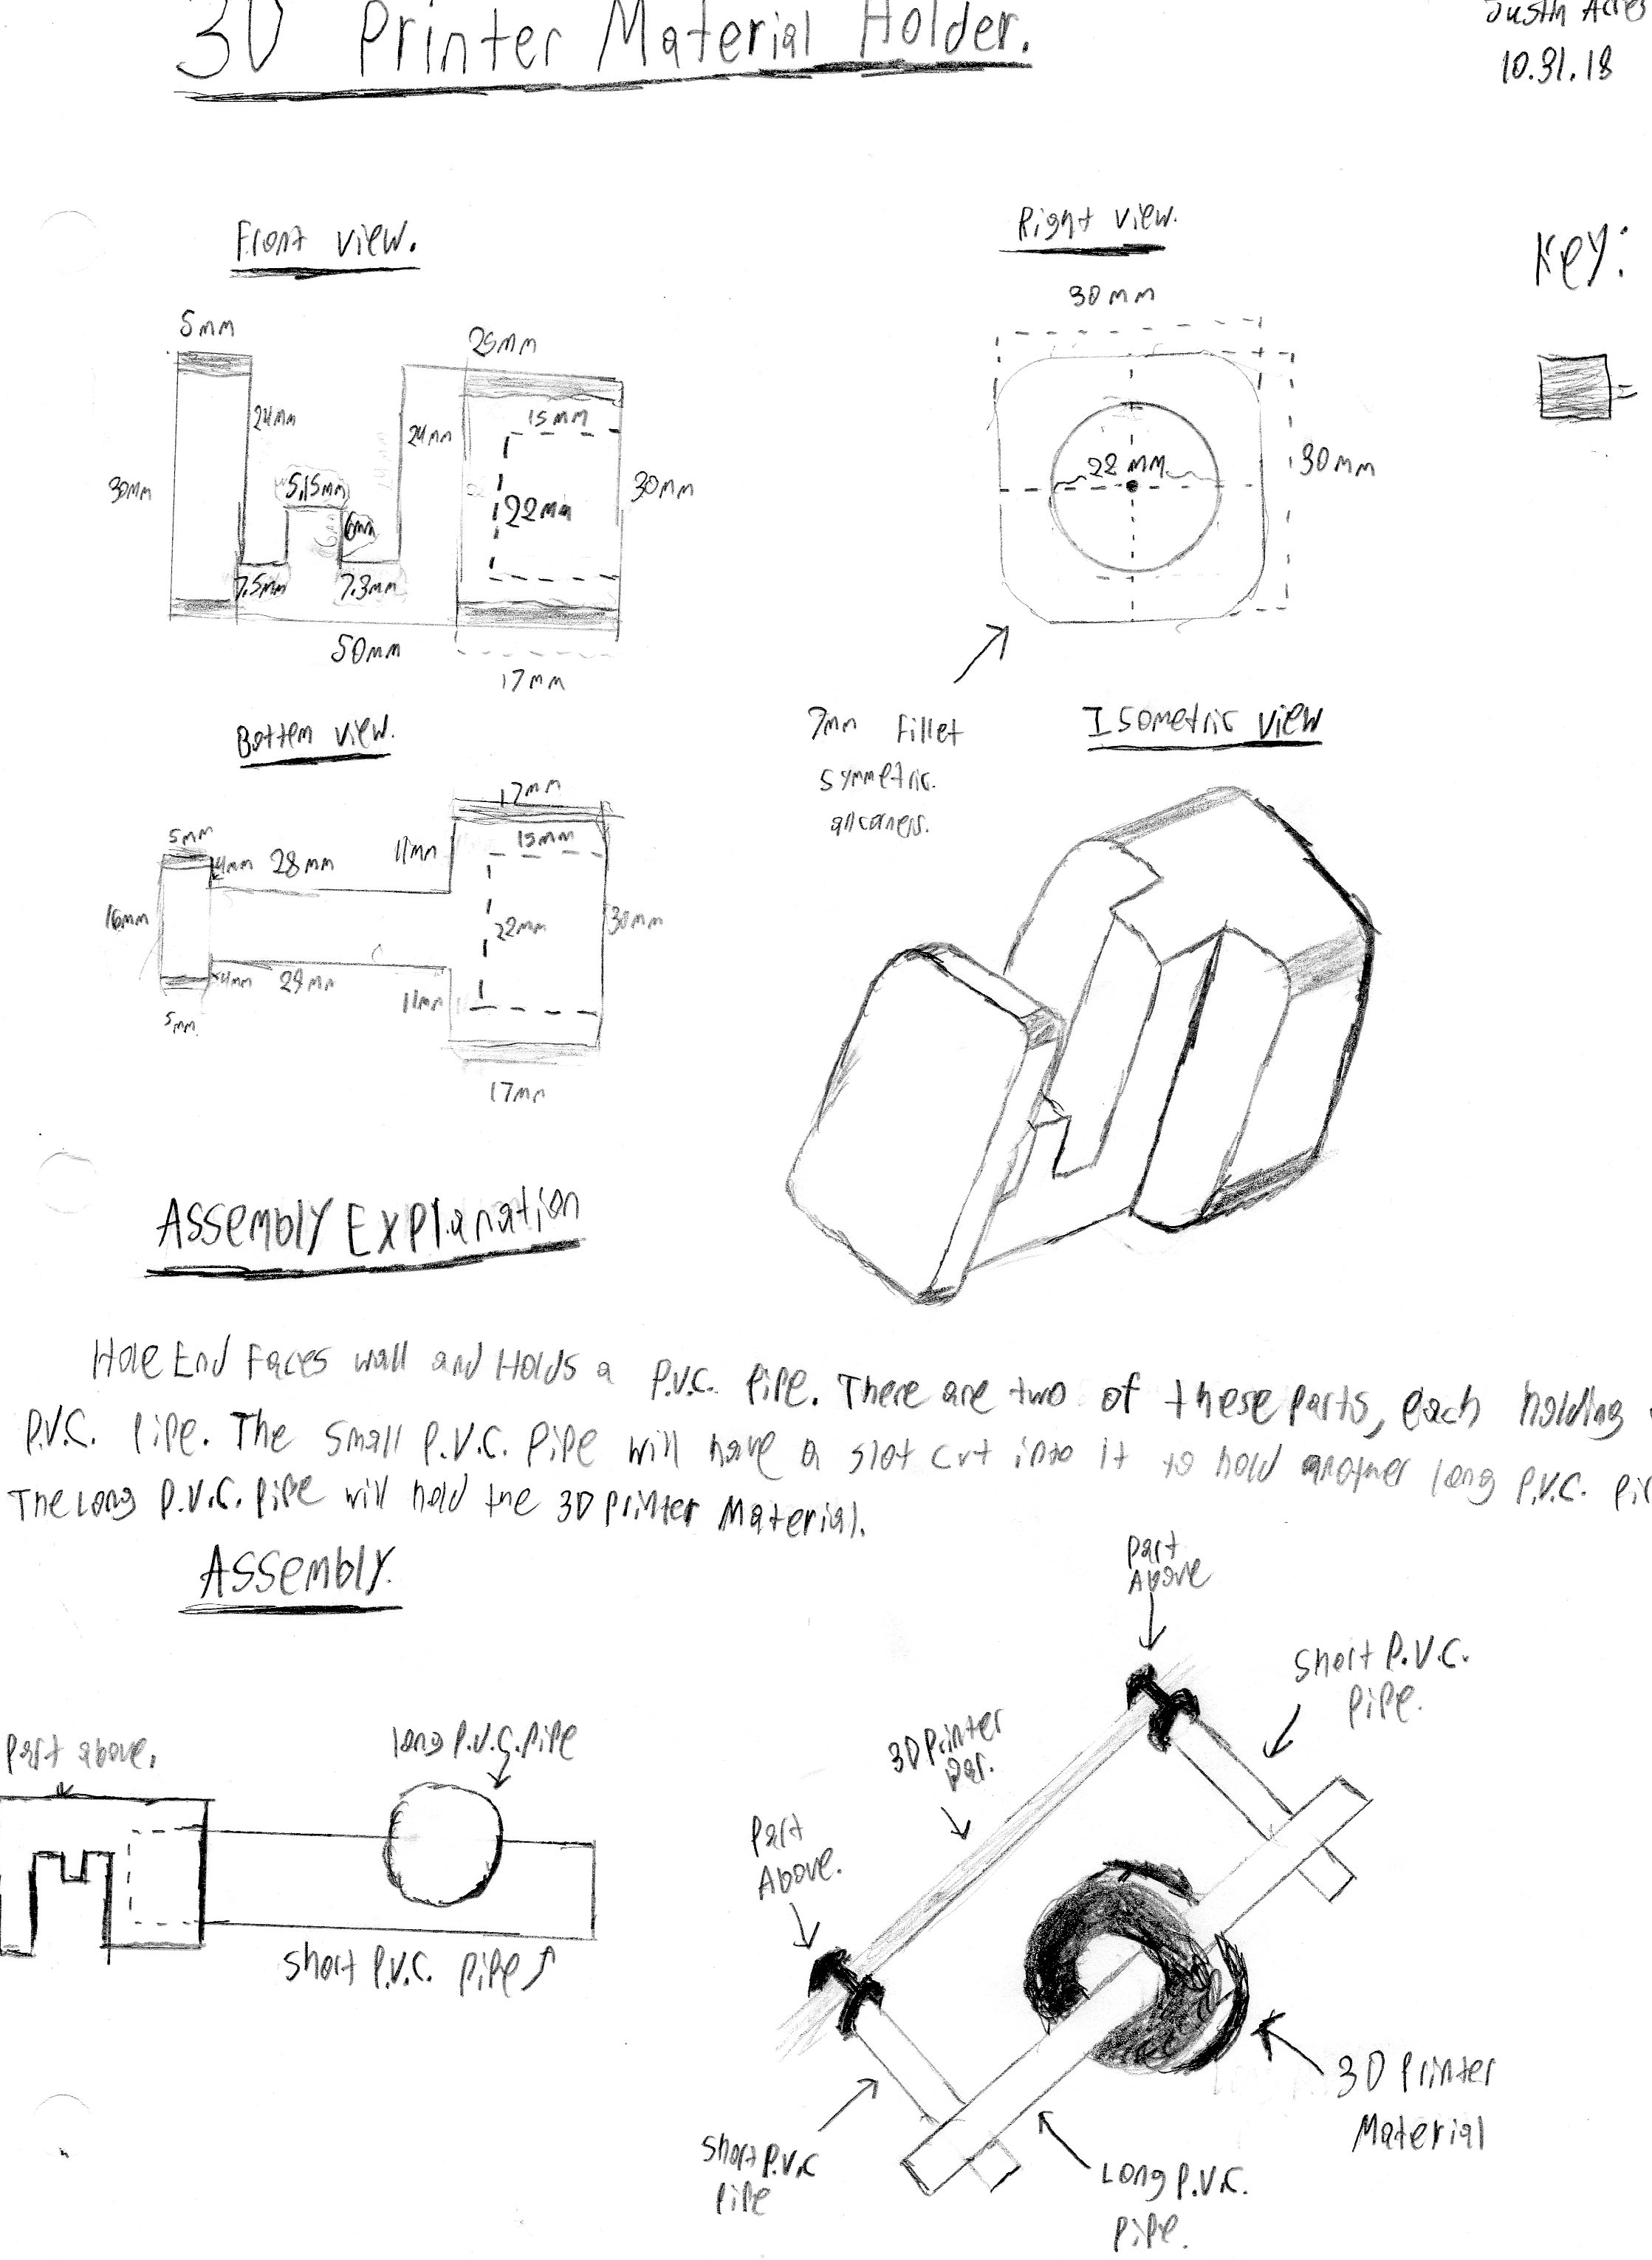 3D Printer Material Holder.
Justin
10.31.18
Front view.
Right view.
Key:
5mm
25mm
24mm
24mm
15mm
30mm
5.15mm
6mm
22mm
30mm
7.5mm
7.3mm
50mm
17mm
30mm
22 mm
30mm
7mm Fillet
symmetric.
all corners.
Bottem view.
Isometric view
17mm
5mm
4mm
28mm
11mm
15mm
16mm
22mm
30mm
4mm
11mm
5mm
17mm
Assembly Explanation
Hole End Faces wall and Holds a P.V.C. Pipe. There are two of these parts, each holding
P.V.C. Pipe. The small P.V.C. Pipe will have a slot cut into it to hold another long P.V.C.
The Long P.V.C. Pipe will hold the 3D Printer Material.
Assembly.
Part above.
long P.V.C. Pipe
short P.V.C. Pipe
Part
Above
short P.V.C.
Pipe.
3D Printer
Part
Above.
Short P.V.C
Pipe
Long P.V.C.
Pipe.
3D Printer
Material